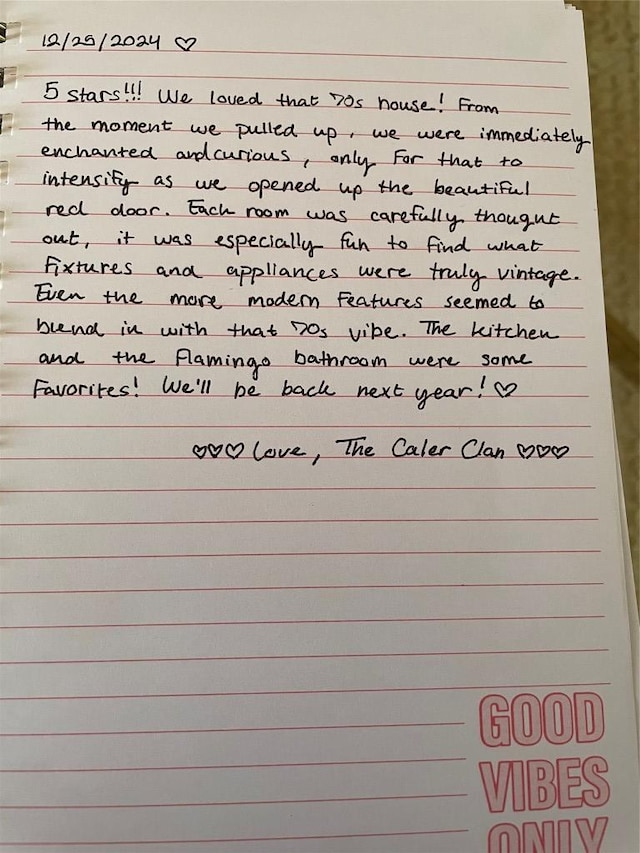 12/25/2024 ♡
5 stars!!! We loved that '70s house! From
the moment we pulled up, we were immediately
enchanted and curious, only for that to
intensify as we opened up the beautiful
red door. Each room was carefully thought
out, it was especially fun to find what
fixtures and appliances were truly vintage.
Even the more modern features seemed to
blend in with that '70s vibe. The kitchen
and the flamingo bathroom were some
favorites! We'll be back next year! ♡
♡♡♡ Love, The Caler Clan ♡♡♡
GOOD
VIBES
ONLY